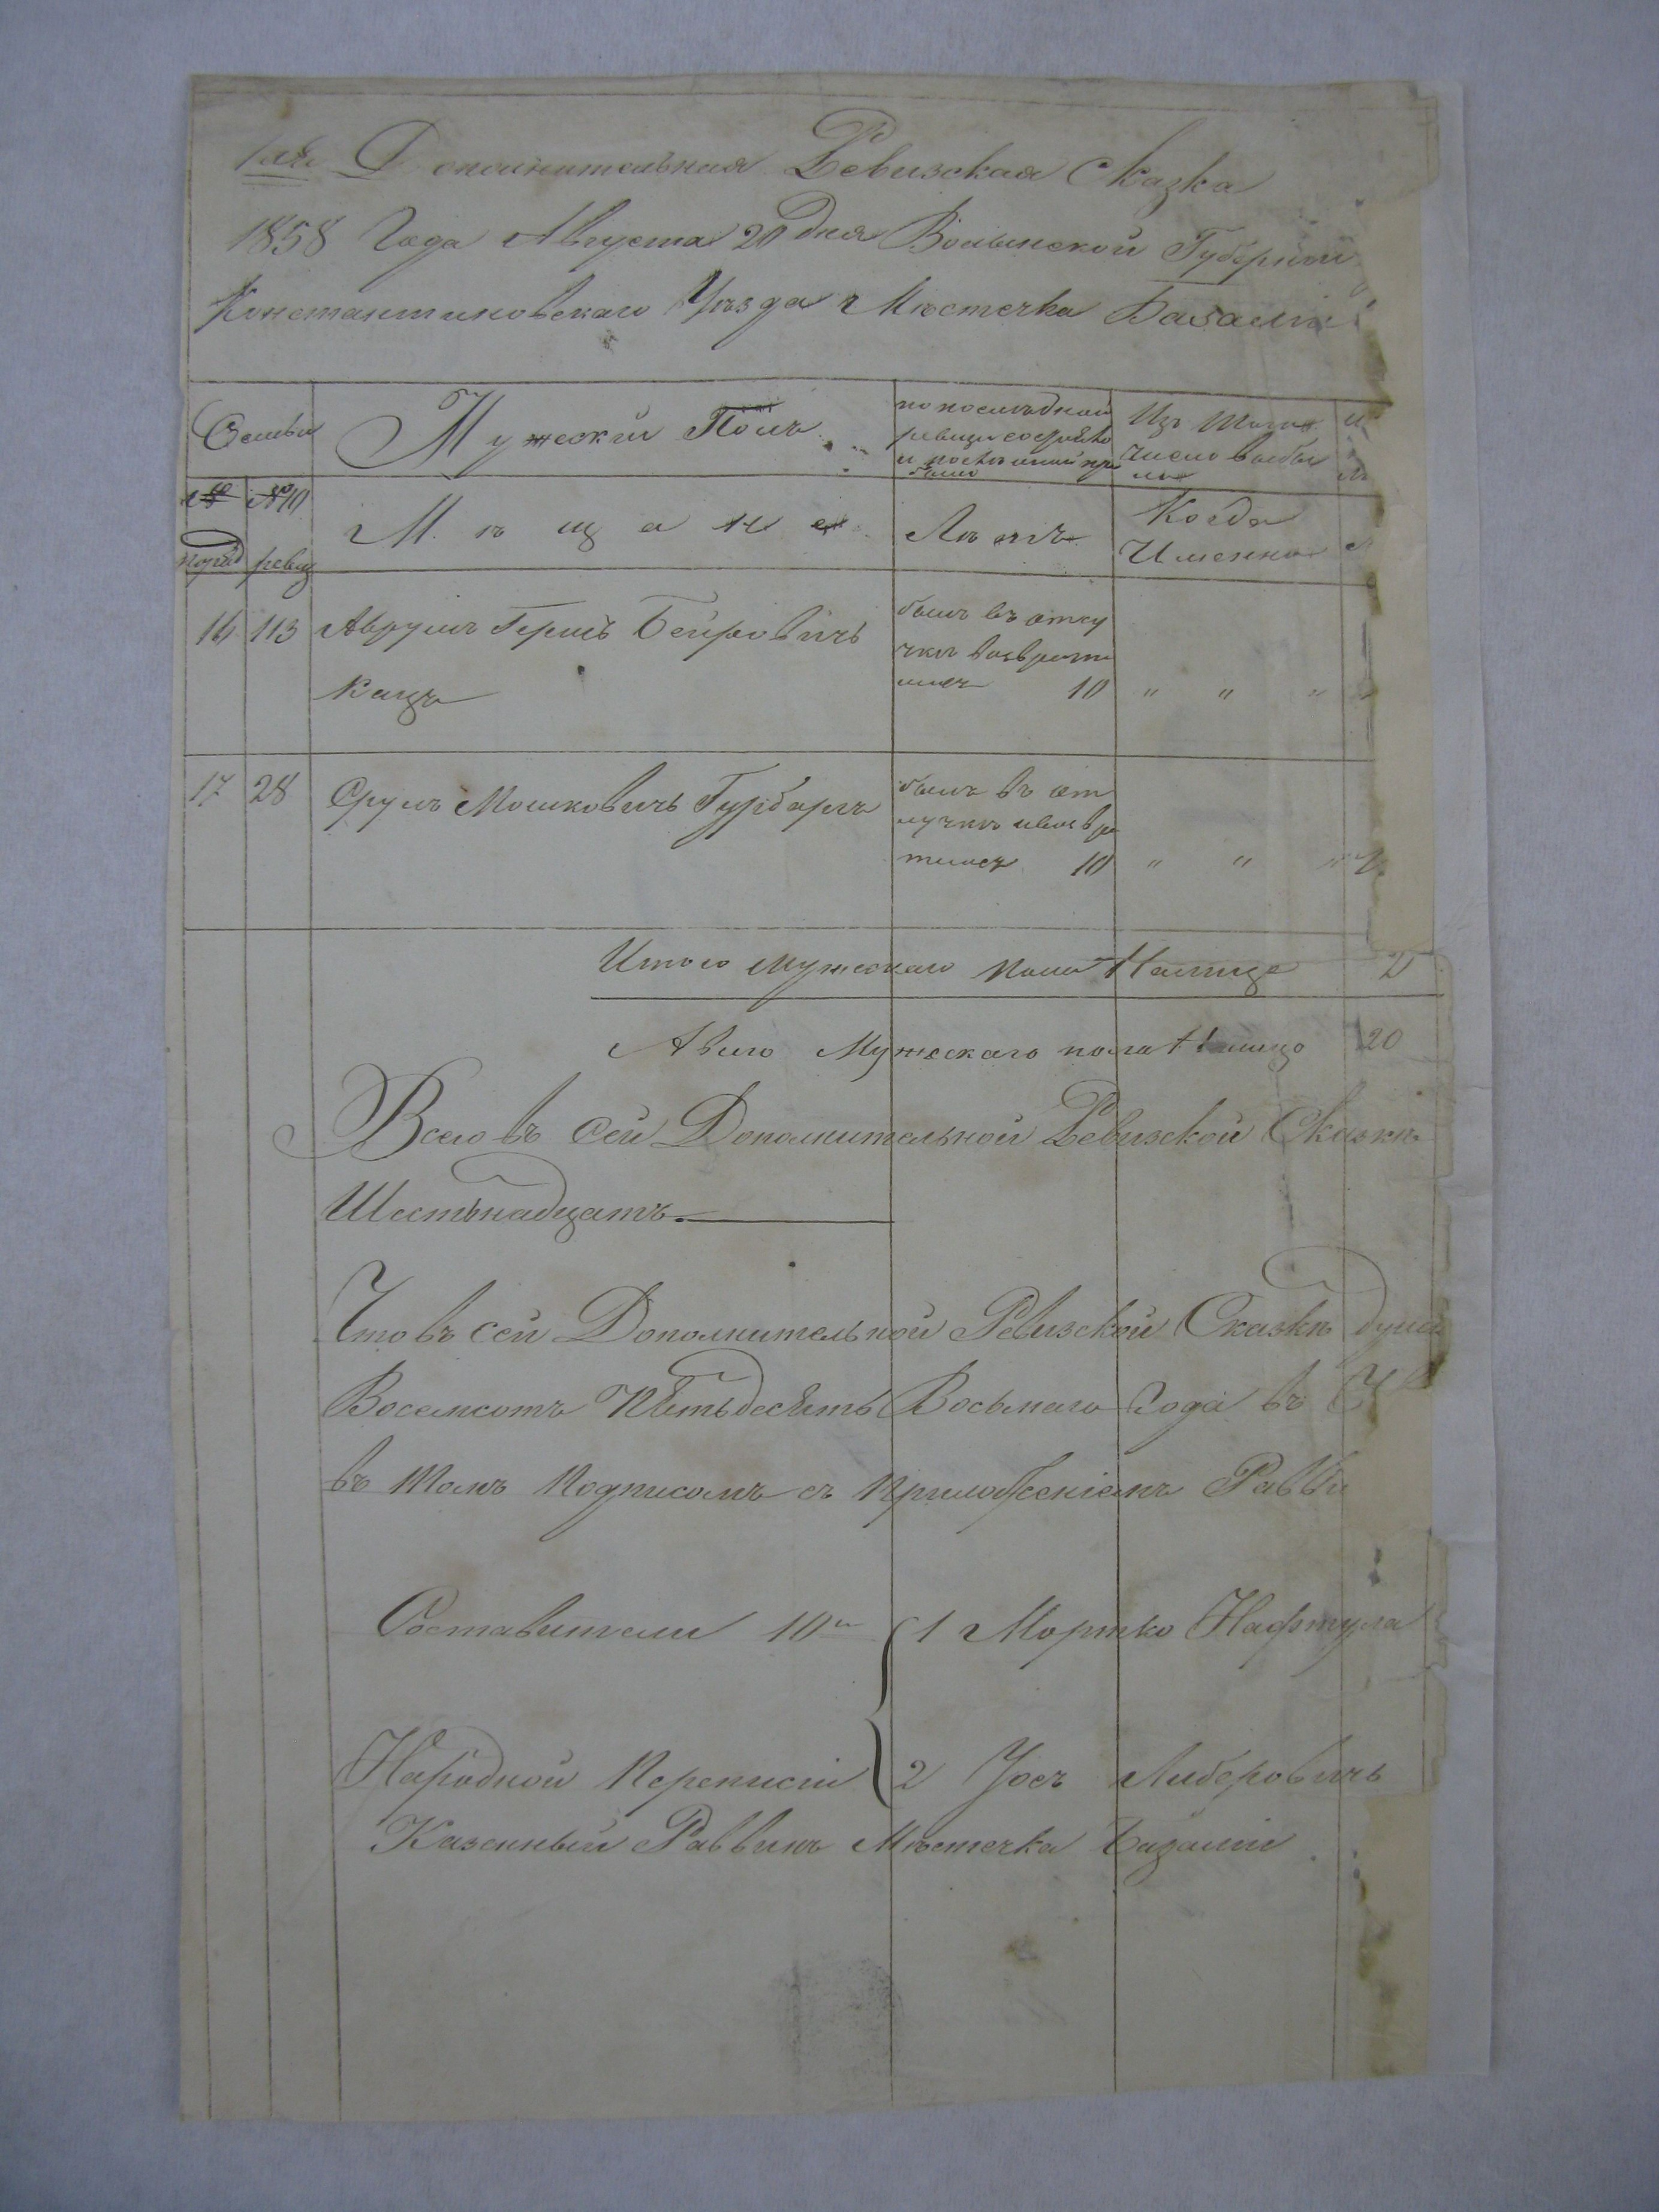 1ая Дополнительная Ревизская Сказка
1858 Года Августа 20 Дня Волынской Губерніи
Константиновскаго Уѣзда Мѣстечка Базаліи
Семьи
Мужескій Полъ
по послѣдней
ревизіи состояло
и послѣ оной при
было
Изъ того
числа выбы
ло
№ № 10
поряд ревиз
Мѣщане
Лѣтъ
Когда
Именно
16 113 Аврумъ Гершъ Беировичъ
Кацъ
былъ въ отлу
чкѣ возврати
лися 10 " " "
17 28 Сруль Мошковичъ Гурбаргъ
былъ въ от
лучкѣ и возвра
тился 10 " " "
Итого мужескаго пола Налицо 2
Авсего Мужескаго пола Налицо 20
Всего въ сей Дополнительной Ревизской Сказкѣ
Шестьнадцать.
Что въ сей Дополнительной Ревизской Сказкѣ душъ
Восемсотъ Пятьдесятъ Восьмаго Года въ
въ томъ Подписомъ съ Приложеніемъ Равви
Составители 10й 1 Мортко Нафтула
Народной Переписи 2 Іосъ Либеровичъ
Казенный Раввинъ Мѣстечка Базаліи